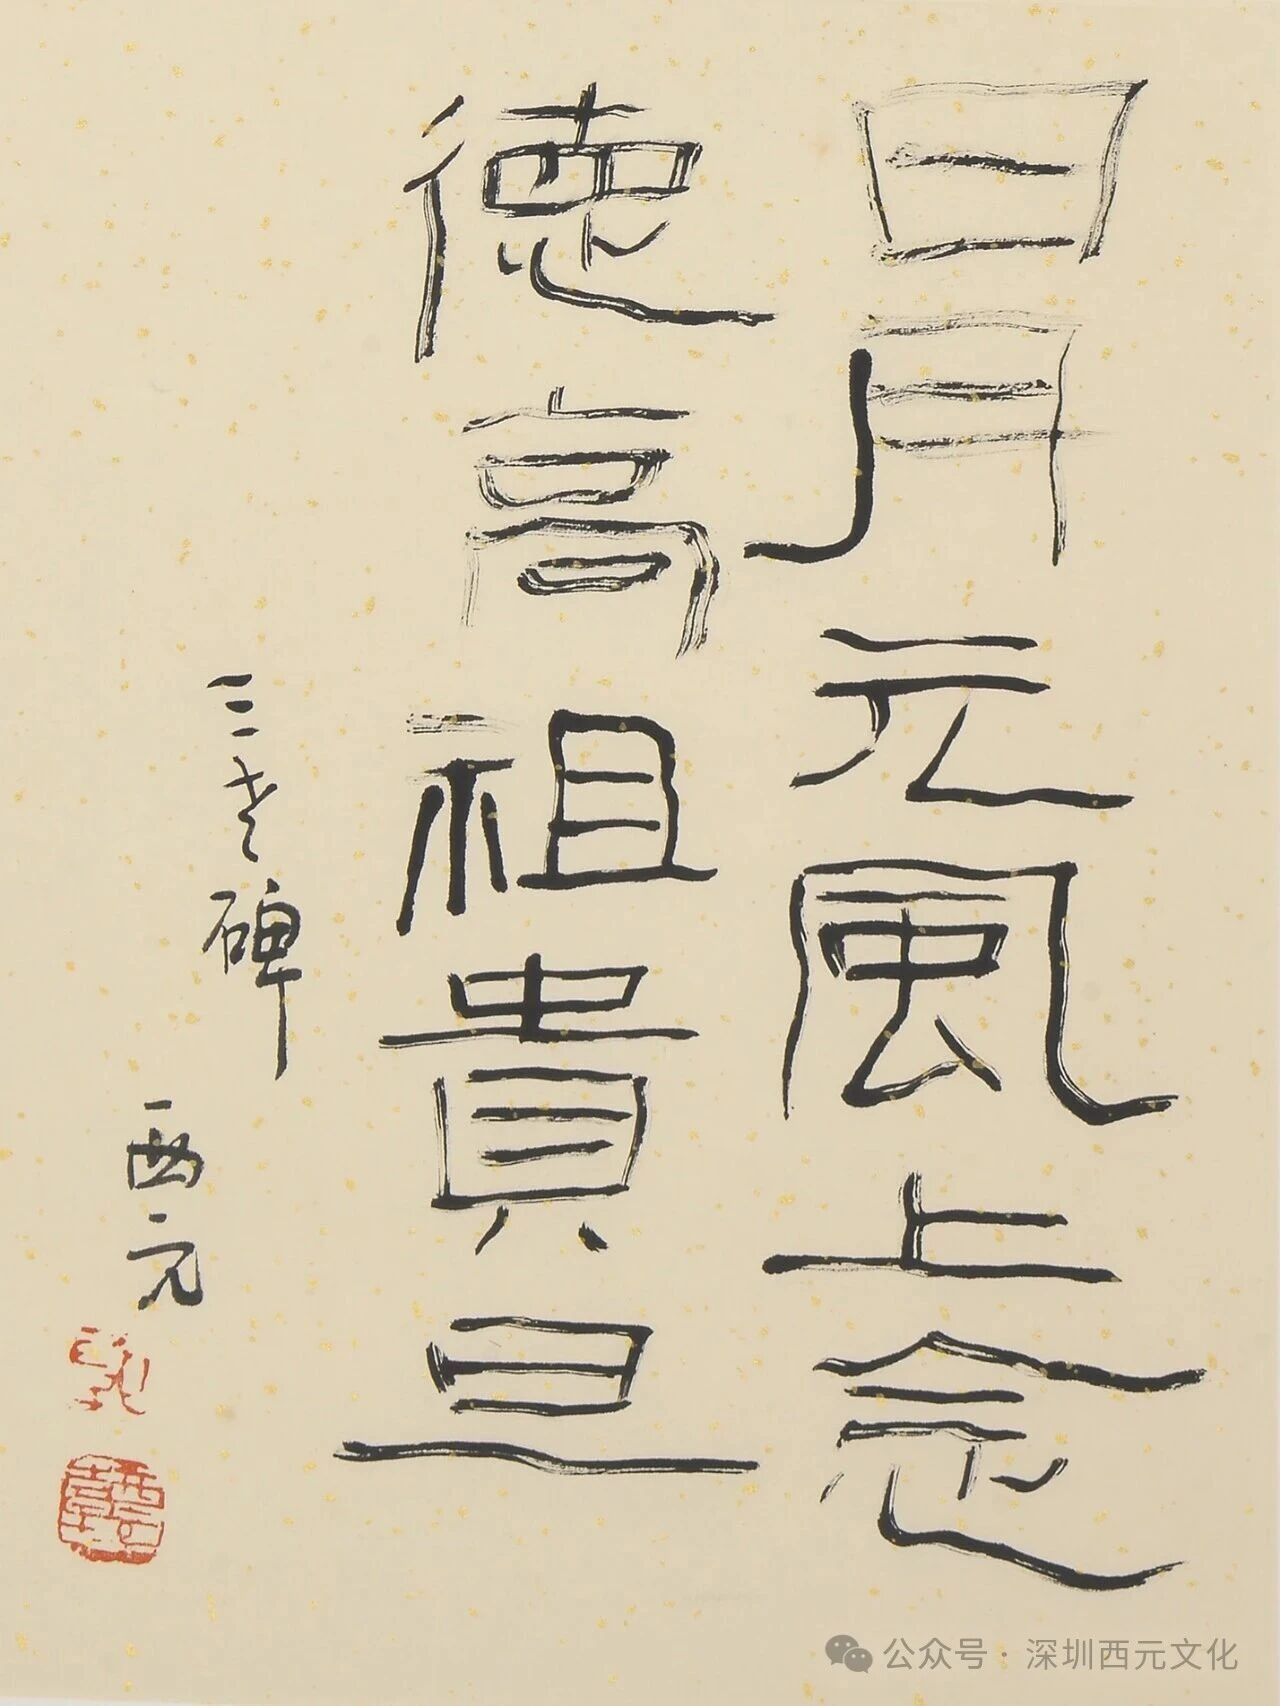 日月元風上念
德高祖貴旦
三老碑
西元
公众号·深圳西元文化